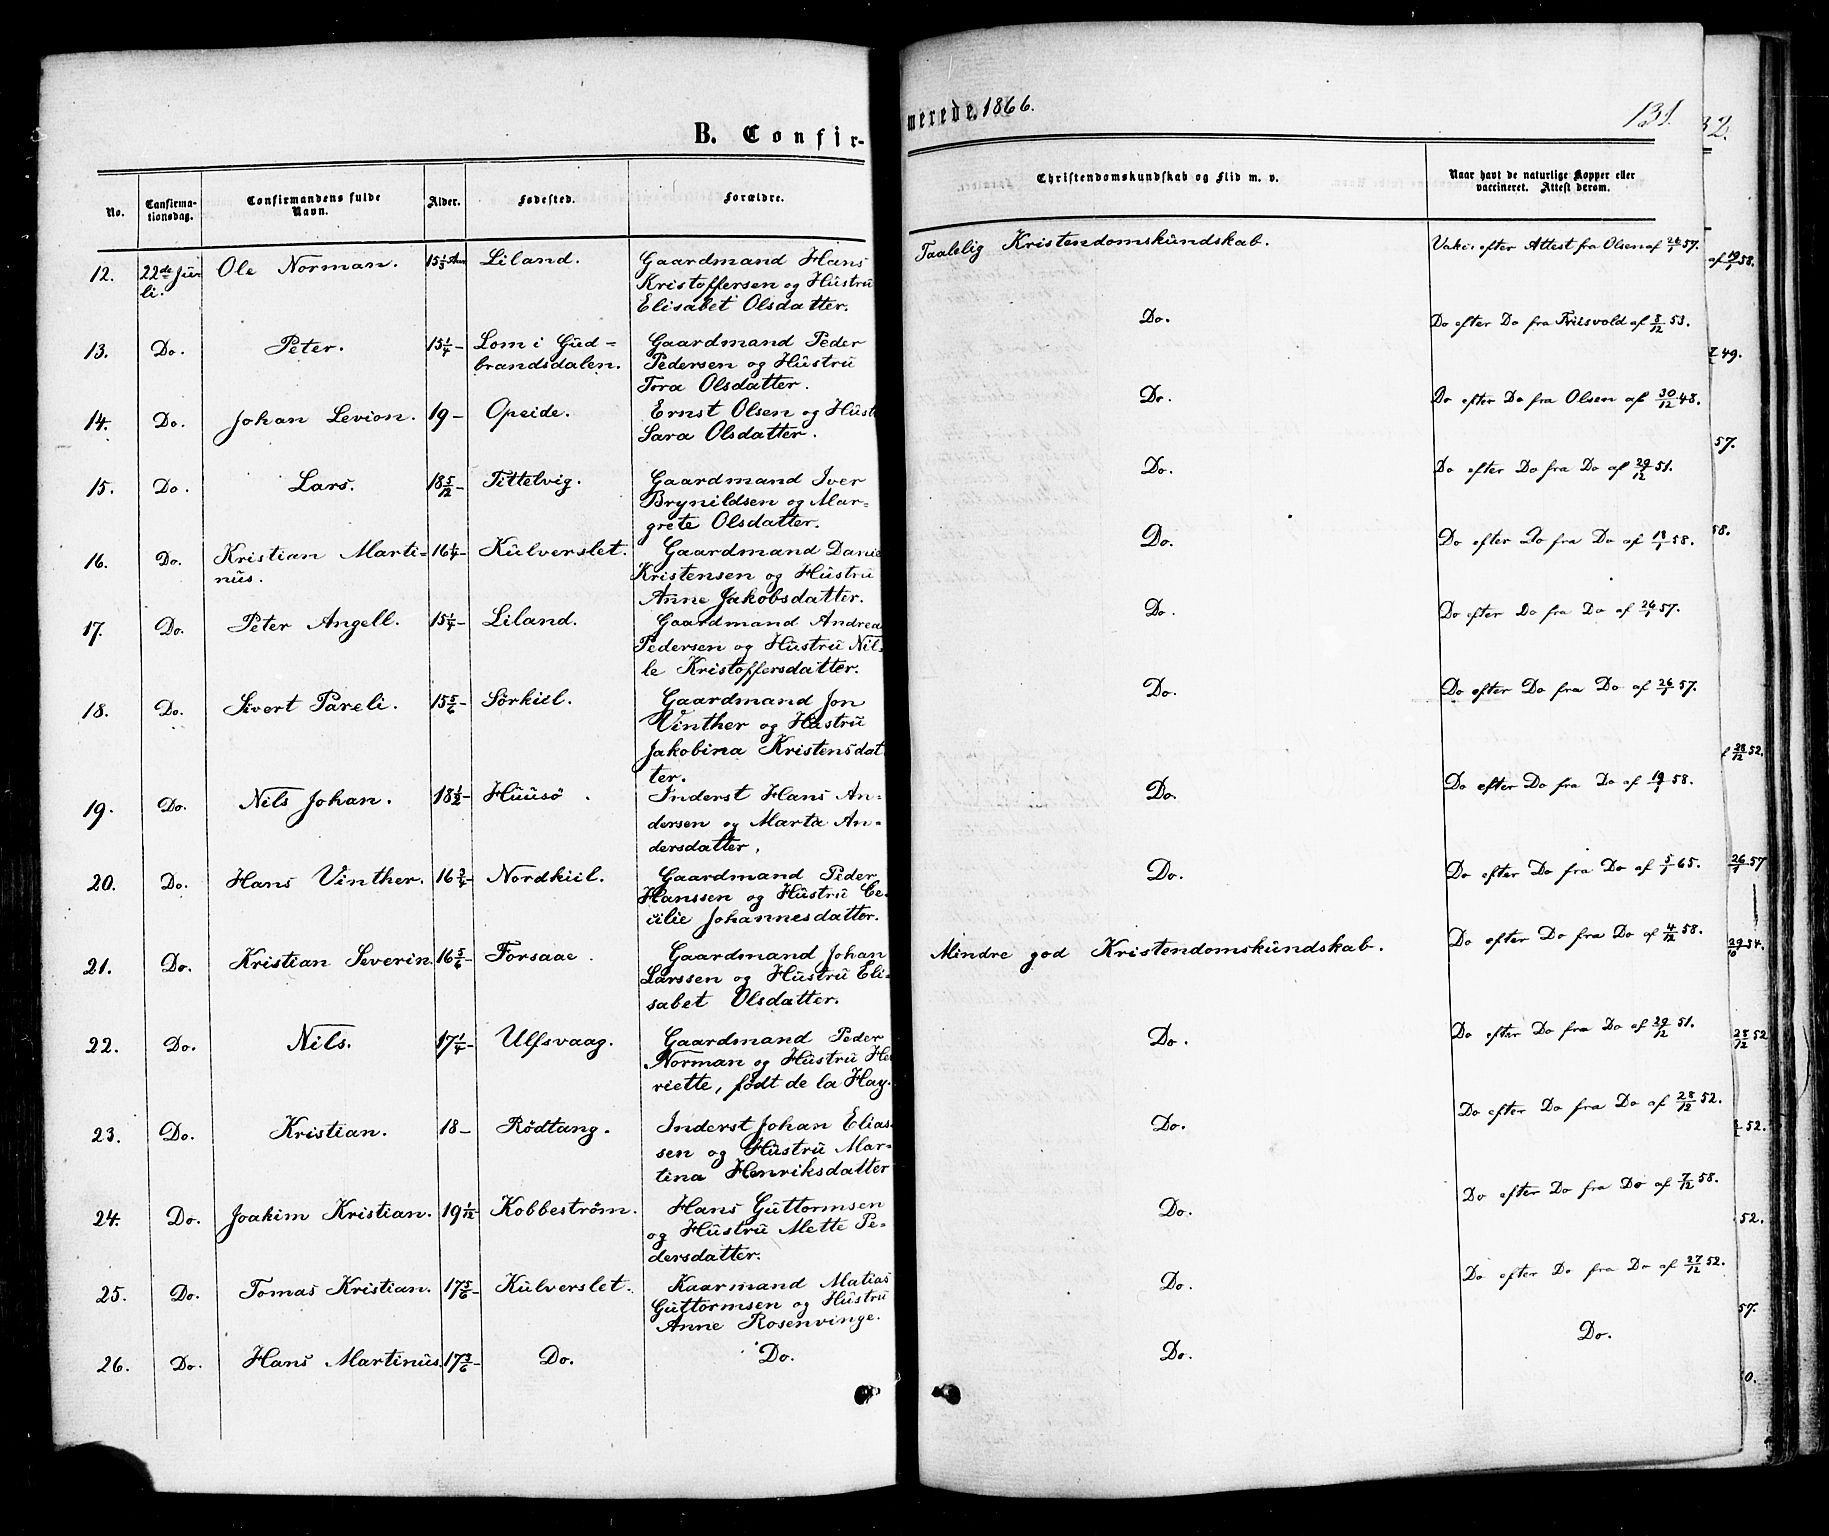 B. Confir-
merede, 1866.
131.
No.
Confirma-
tionsdag.
Confirmandens fulde
Navn.
Alder.
Fødested.
Forældre.
Christendomskundskab og Flid m. v.
Naar havt de naturlige Kopper eller
vaccineret. Attest derom.
12. 22de Ju- Ole Norman. 15 1/3 Aar Liland. Gaardmand Hans
li. Kristoffersen og Hustru
Elisabet Olsdatter.
Taalelig Kristendomskundskab. Vakc. efter Attest fra Olsen af 26/1 57.
13. Do. Peter. 15 1/4 - Lom i Gud- Gaardmand Peder
brandsdalen. Pedersen og Hustru
Tora Olsdatter.
Do. Do efter Do fra Friisvold af 8/12 53.
14. Do. Johan Levion. 19 - Opeide. Ernst Olsen og Hust
Sara Olsdatter.
Do. Do efter Do fra Olsen af 30/12 48.
15. Do. Lars. 18 5/12 - Tittelvig. Gaardmand Iver
Brynildsen og Mar-
grete Olsdatter.
Do. Do efter Do fra Do af 29/12 51.
16. Do. Kristian Marti- 16 1/4 - Kulverslet. Gaardmand Danie
nus. Kristensen og Hustru
Anne Jakobsdatter.
Do. Do efter Do fra Do af 18/1 58.
17. Do. Peter Angell. 15 1/4 - Liland. Gaardmand Andrea
Pedersen og Hustru Nil-
le Kristoffersdatter.
Do. Do efter Do fra Do af 26/1 57.
18. Do. Sivert Pareli. 15 5/6 - Sörkiil. Gaardmand Jon
Vinther og Hustru
Jakobina Kristensdat
ter.
Do. Do efter Do fra Do af 26/1 57.
19. Do. Nils Johan. 18 1/2 - Huusö. Inderst Hans An-
dersen og Marta An-
dersdatter,
Do. Do efter Do fra Do af 19/1 58.
20. Do. Hans Vinther. 16 3/4 - Nordkiil. Gaardmand Peder
Hanssen og Hustru Ce-
cilie Johannesdatter.
Do. Do efter Do fra Do af 5/1 65.
21. Do. Kristian Severin. 16 5/6 - Forsaae. Gaardmand Johan
Larssen og Hustru Eli-
sabet Olsdatter.
Mindre god Kristendomskundskab. Do efter Do fra Do af 4/12 58.
22. Do. Nils. 17 1/4 - Ulfsvaag. Gaardmand Peder
Norman og Hustru Hen
riette, født de la Hay.
Do. Do efter Do fra Do af 29/12 51.
23. Do. Kristian. 18 - Rödtang. Inderst Johan Elias-
sen og Hustru Mar-
tina Henriksdatter
Do. Do efter Do fra Do af 28/12 52.
24. Do. Joakim Kristian. 19 1/12 - Kobbeström. Hans Guttormsen
og Hustru Mette Pe-
dersdatter.
Do. Do efter Do fra Do af 7/12 58.
25. Do. Tomas Kristian. 17 5/6 - Kulverslet. Kaarmand Matias
Guttormsen og Hustru
Anne Rosenvinge.
Do. Do efter Do fra Do af 27/12 52.
26. Do. Hans Martinus. 17 3/6 - Do. Do.
Do. Do.
32.
af 19/1 58.
49.
57.
58.
f 28/12 52.
26/1 57
29/6 54.
28/12 52
52.
52.
57.
0.